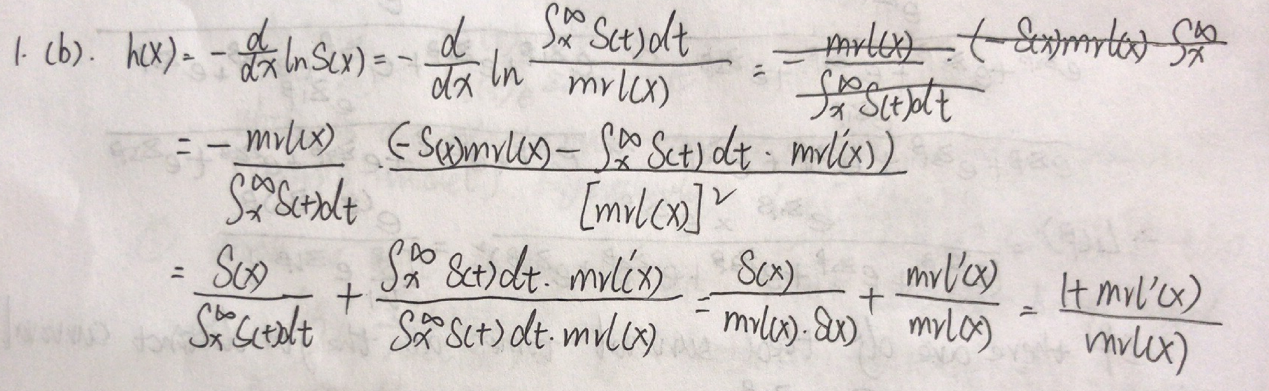 1. (b). h(x) = - d/dx ln S(x) = - d/dx ln ∫ₓ^∞ S(t)dt / mrl(x) = - mrl(x) / ∫ₓ^∞ S(t)dt · (- S(x)mrl(x) ∫ₓ^∞
= - mrl(x) / ∫ₓ^∞ S(t)dt · (- S(x)mrl(x) - ∫ₓ^∞ S(t)dt · mrl'(x)) / [mrl(x)]²
= S(x) / ∫ₓ^∞ S(t)dt + ∫ₓ^∞ S(t)dt · mrl'(x) / ∫ₓ^∞ S(t)dt · mrl(x) = S(x) / mrl(x) · S(x) + mrl'(x) / mrl(x) = 1 + mrl'(x) / mrl(x)